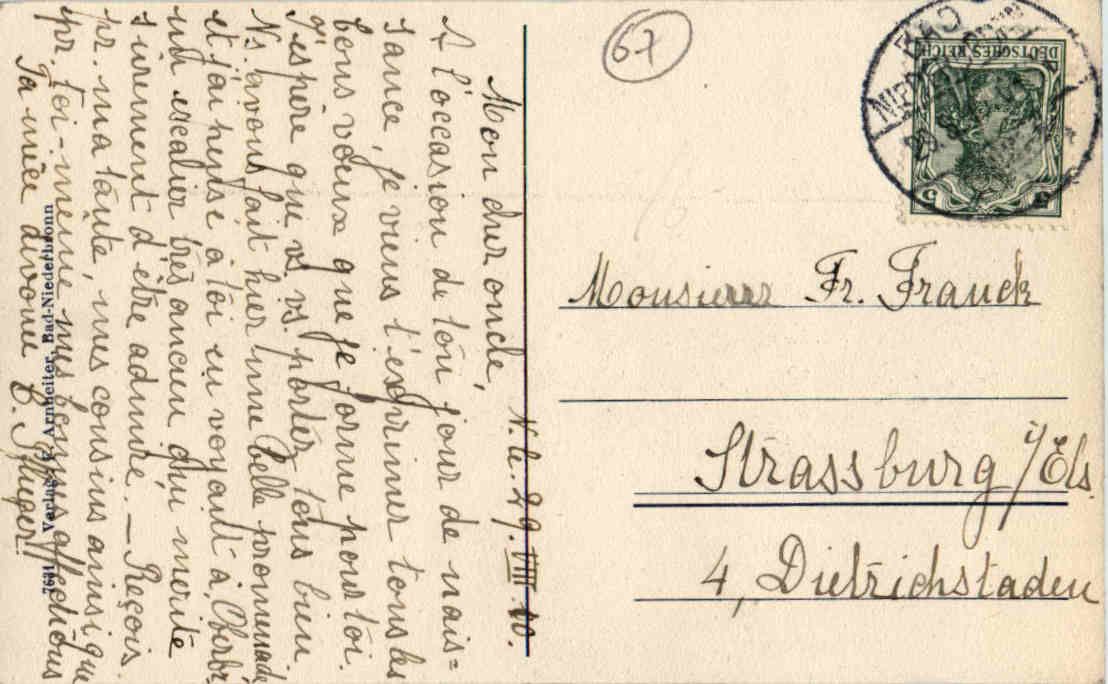 Mon cher oncle,
N. le. 29. VIII. 10.
A l'occasion de ton jour de nais=
sance, je viens t'exprimer tous les
bons vœux que je forme pour toi.
J'espère que vs. vs. portez tous bien
Ns. avons fait hier une belle promenade
et j'ai pensé à toi en voyant à Oberb.
und escalier très ancien qui mérite
surement d'être admiré. — Reçois
pr. ma tante, mes cousins ainsi que
pr. toi-même mes bempps affectiòns
Ta nièce dévouée E. Pflieger.
7691 Verlag Arbeiter, Bad-Niederbronn
67
DEUTSCHES REICH
5 5
BAD
NIEDERBRONN
29
Monsieur Fr. Franck
Strassburg i/Els.
4, Dietrichstaden